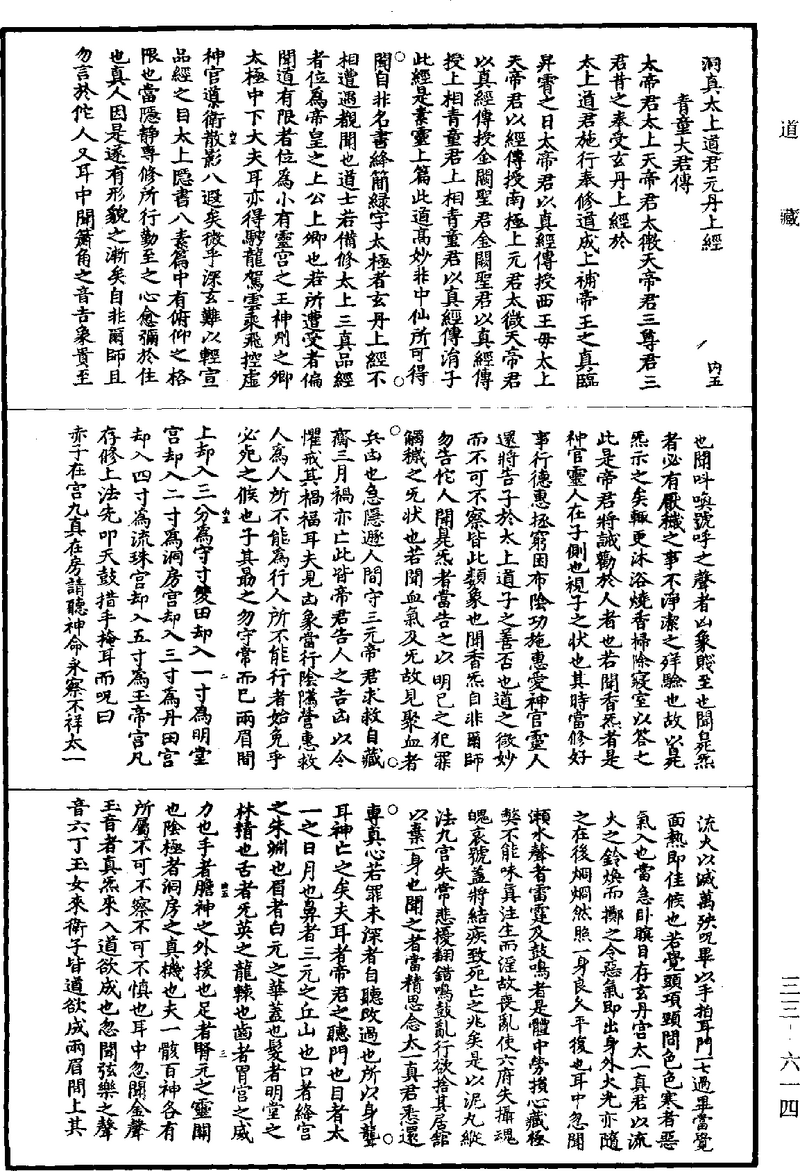 道藏
三三-六一四
洞真太上道君元丹上經
内五
青童大君傳
太帝君太上天帝君太微天帝君三尊君三
君昔之奉受玄丹上經於
太上道君施行奉修道成上補帝王之真臨
昇霄之日太帝君以真經傳授西王母太上
天帝君以經傳授南極上元君太微天帝君
以真經傳授金闕聖君金闕聖君以真經傳
授上相青童君上相青童君以真經傳涓子
此經是素靈上篇此道高妙非中仙所可得
聞自非名書絳簡緑字太極者玄丹上經不
相遭遇觀聞也道士若備修太上三真品經
者位爲帝皇之上公上卿也若所遭受者偏
聞道有限者位爲小有靈宫之王神州之卿
太極中下大夫耳亦得驂龍駕雲乘飛控虚
神官導衛散影八遐矣微乎深玄難以輕宣
品經之目太上隠書八素篇中有俯仰之格
限也當隠静專修所行勤至之心愈彌於住
也真人因是遂有形貌之漸矣自非爾師且
勿言於佗人又耳中聞簫角之音吉象貴至
也聞叫喚號呼之聲者凶象賤至也聞晁炁
者必有厭穢之事不淨潔之殃驗也故以晁
炁示之矣輙更沐浴燒香掃除寢室以答之
此是帝君將誠勸於人者也若聞香炁者是
神官靈人在子側也視子之状也其時當修好
事行德惠拯窮困布陰功施惠愛神官靈人
還將告子於太上道子之善否也道之微妙
而不可不察皆此類象也聞香炁自非爾師
勿告佗人聞晁炁者當告之以明己之犯罪
觸穢之旡状也若聞血氣及旡故見聚血者
兵凶也急隠遯人間守三元帝君求救自藏
齋三月禍亦亡此皆帝君告人之吉凶以令
懼戒其禍福耳夫見凶象當行陰隲營惠救
人爲人所不能爲行人所不能行者始免乎
必死之候也子其勗之勿守常而已兩眉間
上却入三分爲守寸雙田却入一寸爲明堂
宫却入二寸爲洞房宫却入三寸爲丹田宫
却入四寸爲流珠宫却入五寸爲玉帝宫凡
存修上法先叩天鼓措手掩耳而呪曰
赤子在宫九真在房請聽神命永察不祥太一
流火以滅萬殃呪畢以手拍耳門二七過畢當覺
面熱即佳候也若覺頭項頸間色色寒者惡
氣入也當急卧瞑目存玄丹宫太一真君以流
火之鈴煥而擲之令惡氣即出身外火光亦隨
之在後烱烱然照一身良久平復也耳中忽聞
瀨水聲者雷霆及鼓鳴者是體中勞損心藏極
弊不能味真注生而淫故喪亂使六府失攝魂
魄哀號蓋將結疾致死亡之兆矣是以泥丸縱
法九宫失常悲擾翻錯鳴鼓亂行欲捨其居舘
以棄一身也聞之者當精思念太一真君悉還
專真心若罪未深者自聽改過也所以身聾
耳神亡之矣夫耳者帝君之聽門也目者太
一之日月也鼻者三元之丘山也口者絳宫
之朱淵也眉者白元之華蓋也髮者明堂之
林精也舌者旡英之龍轅也齒者胃宫之威
力也手者膽神之外援也足者腎元之靈關
也陰極者洞房之真機也夫一骸百神各有
所屬不可不察不可不慎也耳中忽聞金聲
玉音者真炁來入道欲成也忽聞弦樂之聲
音六丁玉女來衛子皆道欲成兩眉間上其